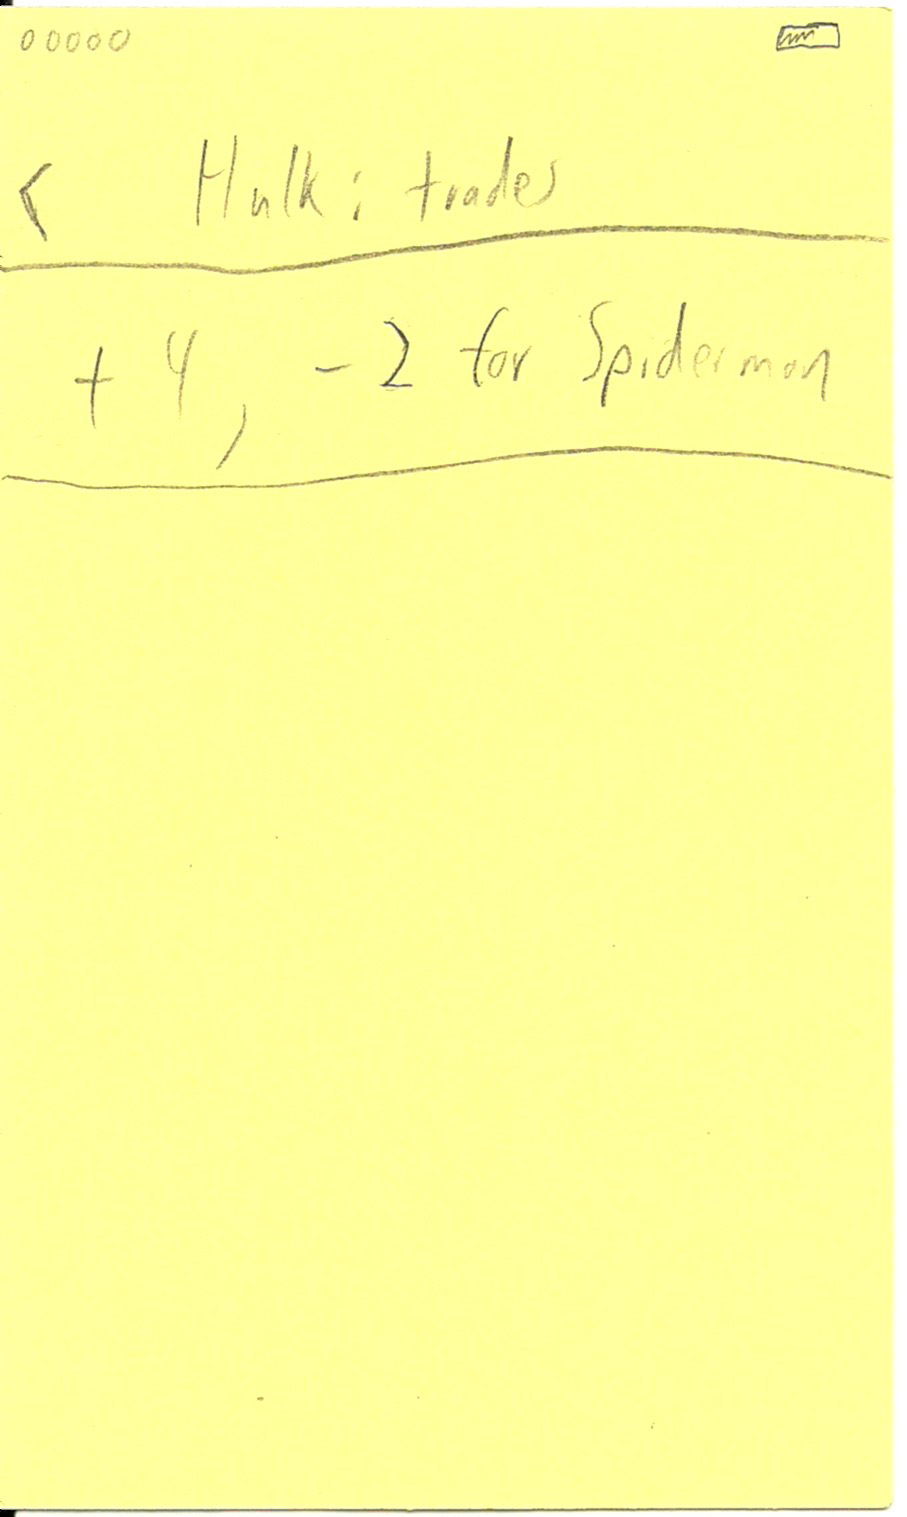 00000
< Hulk: trades
+ 4, - 2 for Spiderman